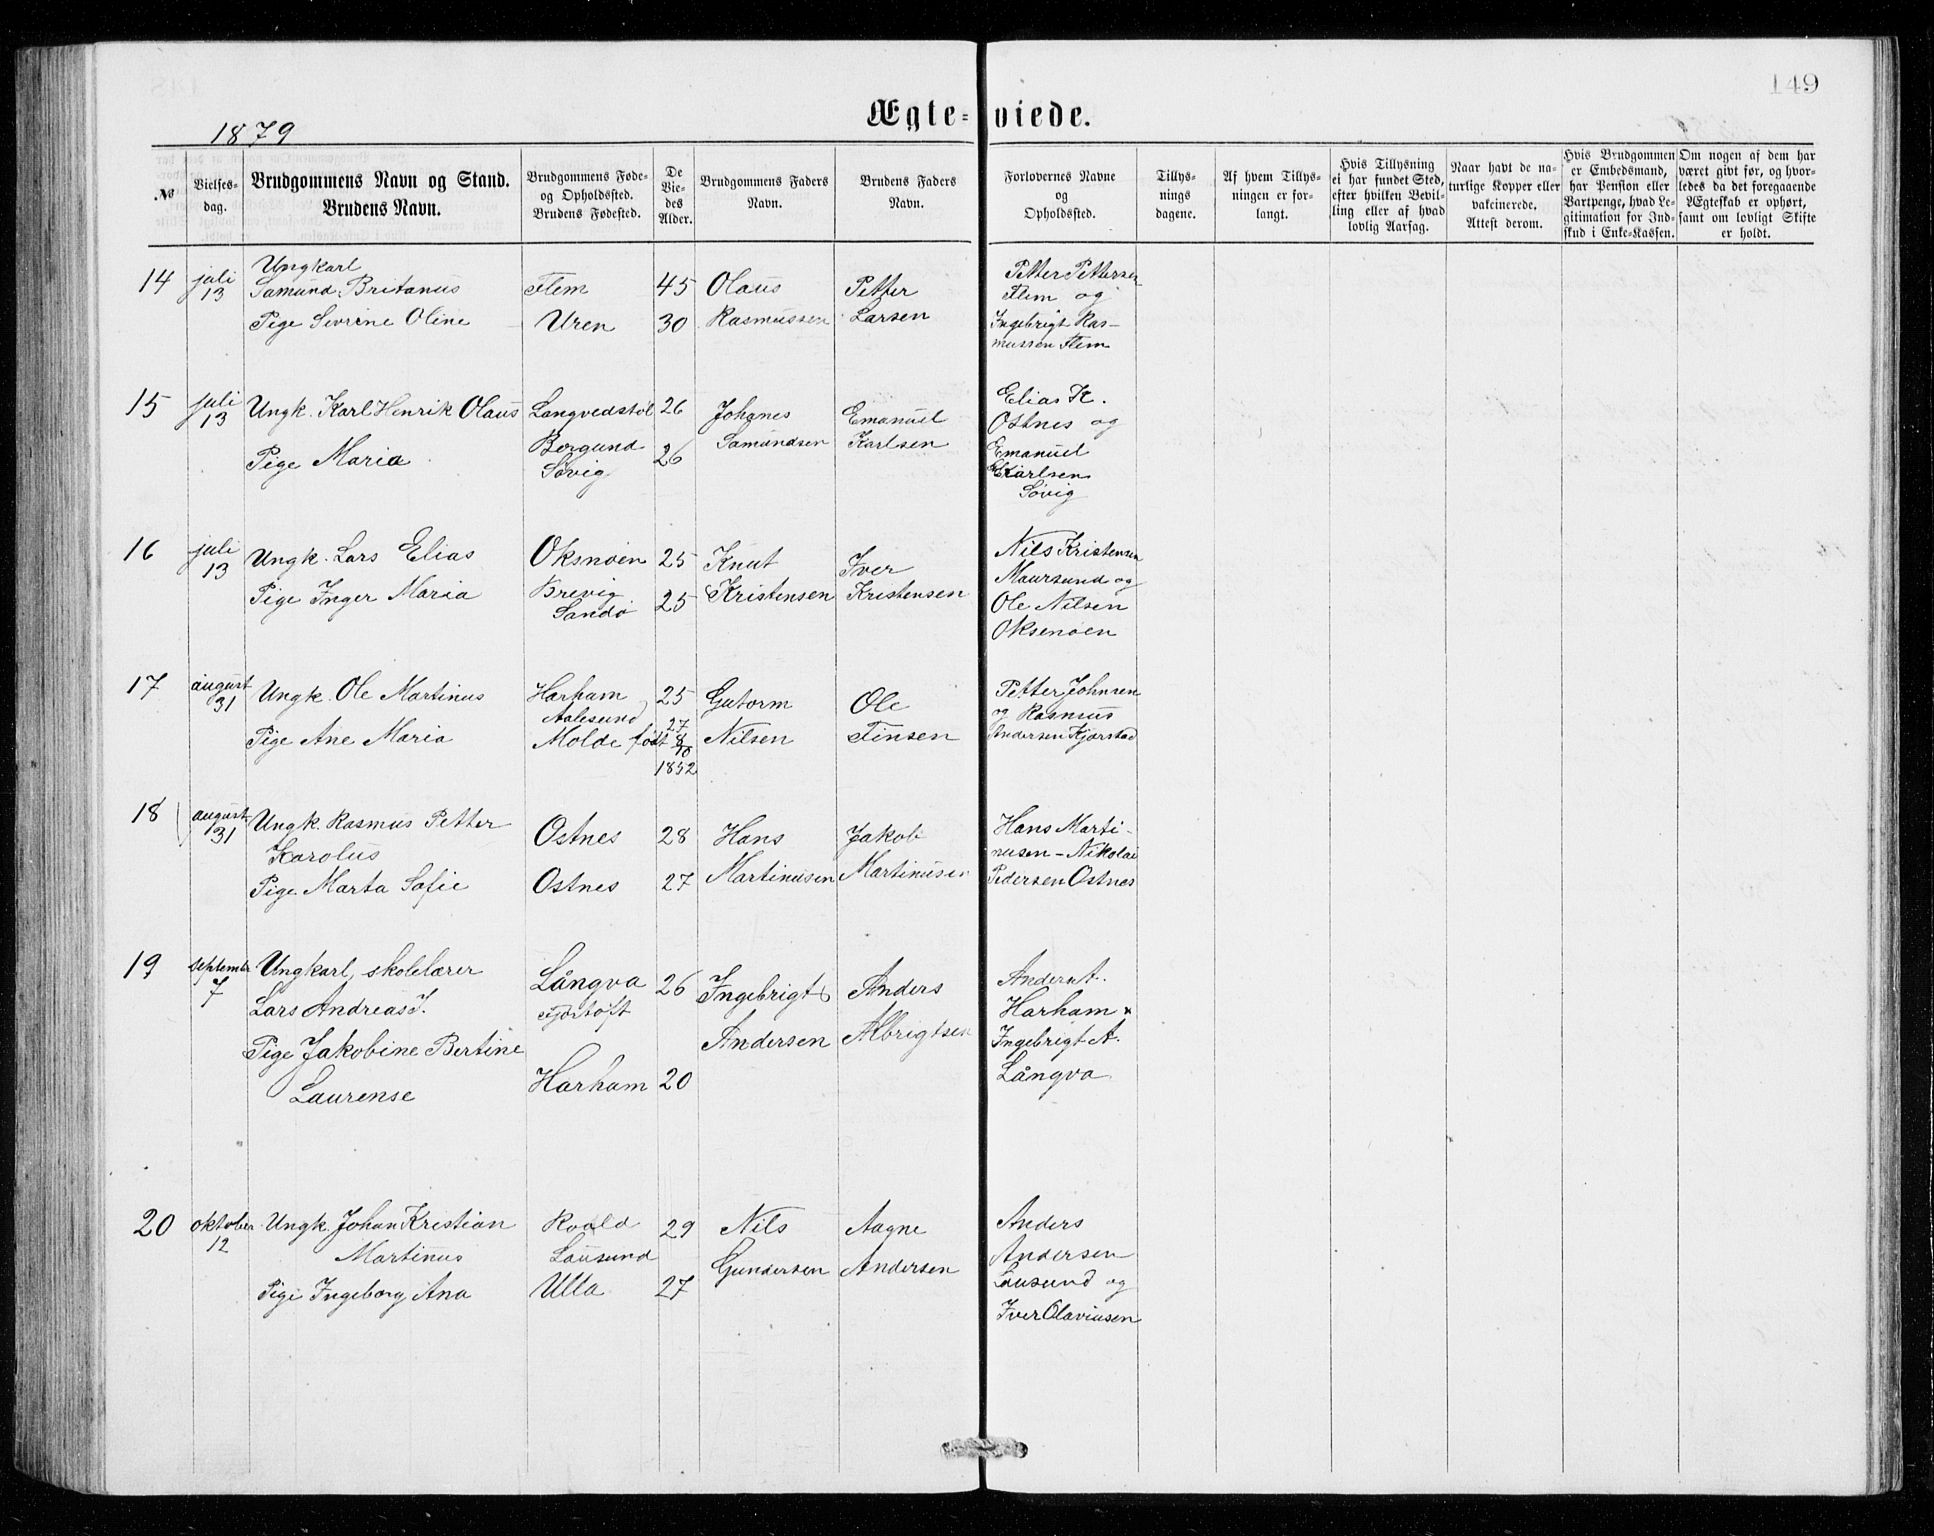 149
Ægte-viede.
1879
No
Vielses-
dag.
Brudgommens Navn og Stand.
Brudens Navn.
Brudgommens Føde-
og Opholdssted.
Brudens Fødested.
De
Vie-
des
Alder.
Brudgommens Faders
Navn.
Brudens Faders
Navn.
Forlovernes Navne
og
Opholdssted.
Tillys-
nings
dagene.
Af hvem Tillys-
ningen er for-
langt.
Hvis Tillysning
ei har fundet Sted,
efter hvilken Bevil-
ling eller af hvad
lovlig Aarsag.
Naar havt de na-
turlige Kopper eller
vakcinerede.
Attest derom.
Hvis Brudgommen
er Embedsmand,
har Pension eller
Vartpenge, hvad Le-
gitimation for Ind-
skud i Enke-Kassen.
Om nogen af dem har
været givt før, og hvor-
ledes da det foregaaende
Ægteskab er ophørt,
samt om lovligt Skifte
er holdt.
14
juli
13
Ungkarl
Samund Britanus
Pige Sivrine Oline
Flem
Uren
45
30
Olaus
Rasmussen
Petter
Larsen
Petter Pettersen
Flem og
Ingebrigt Ras-
mussen Flem
15
juli
13
Ungk. Karl Henrik Olaus
Pige Maria
Langvedstøl
Borgund
Søvig
26
26
Johanes
Samundsen
Emanuel
Karlsen
Elias K.
Ostnes og
Emanuel
Karlsen
Søvig
16
juli
13
Ungk. Lars Elias
Pige Inger Maria
Oksnøen
Brevig
Sandø
25
25
Knut
Kristensen
Iver
Kristensen
Nils Kristensen
Maursund og
Ole Nilsen
Oksenøen
17
august
31
Ungk. Ole Martinus
Pige Ane Maria
Harham
Aalesund
Molde født
25
27
8/10
1852
Gutorm
Nilsen
Ole
Finsen
Petter Johnsen
og Rasmus
Andersen Kjærstad
18
august
31
Ungk. Rasmus Petter
Karolus
Pige Marta Sofie
Ostnes
Ostnes
28
27
Hans
Martinusen
Jakob
Martinusen
Hans Marti-
nusen - Nikolai
Pedersen Ostnes
19
September
7
Ungkarl, skolelærer
Lars Andreas I.
Pige Jakobine Bertine
Laurense
Långva
Fjørtoft
Harham
26
20
Ingebrigt
Andersen
Anders
Albrigtsen
Anders A.
Harham &
Ingebrigt A.
Långva
20
oktober
12
Ungk. Johan Kristian
Martinus
Pige Ingeborg Ana
Roald
Lausund
Ulla
29
27
Nils
Gundersen
Aagne
Andersen
Anders
Andersen
Lausund og
Iver Olaviusen